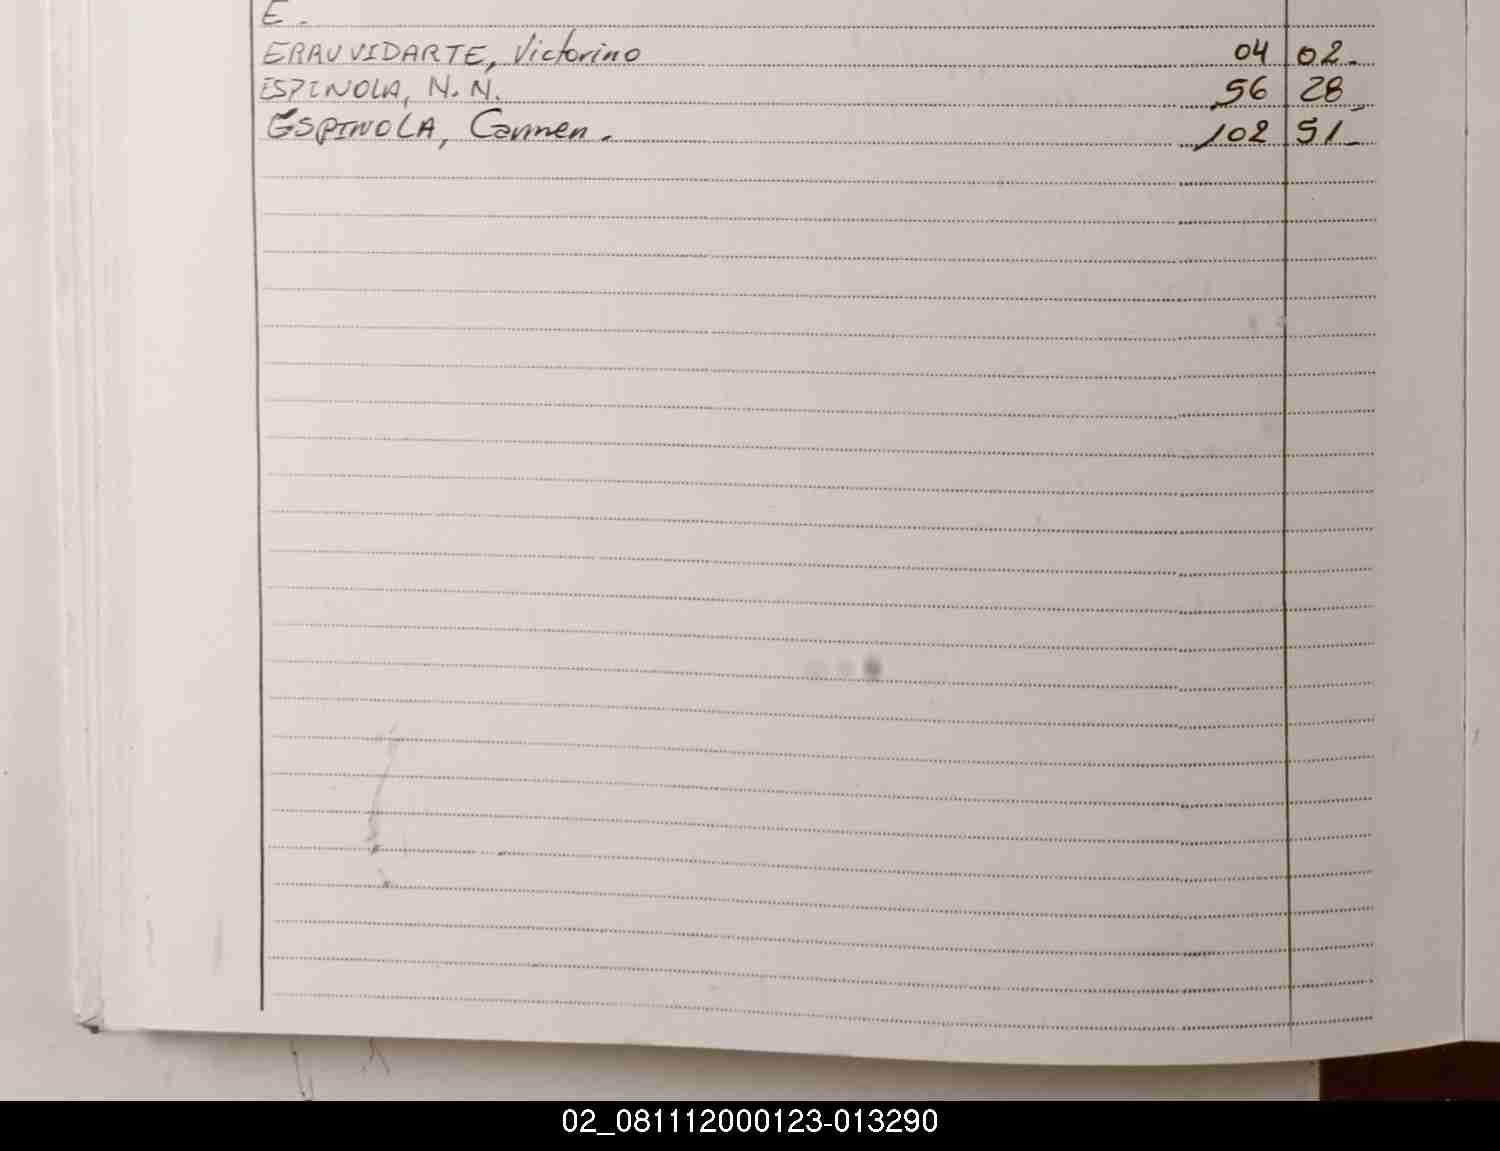 E.
ERAUVIDARTE, Victorino 04 02.
ESPINOLA, N.N. 56 28
ESPINOLA, Carmen. 102 51
02_081112000123-013290